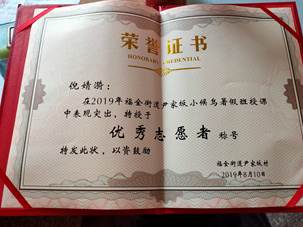 荣誉证书
HONORARY CREDENTIAL
倪婧漪:
在2019年福全街道尹家坂小候鸟暑假班授课
中表现突出，特授于
优秀志愿者 称号
特发此状，以资鼓励
福全街道尹家坂村
2019年8月10日